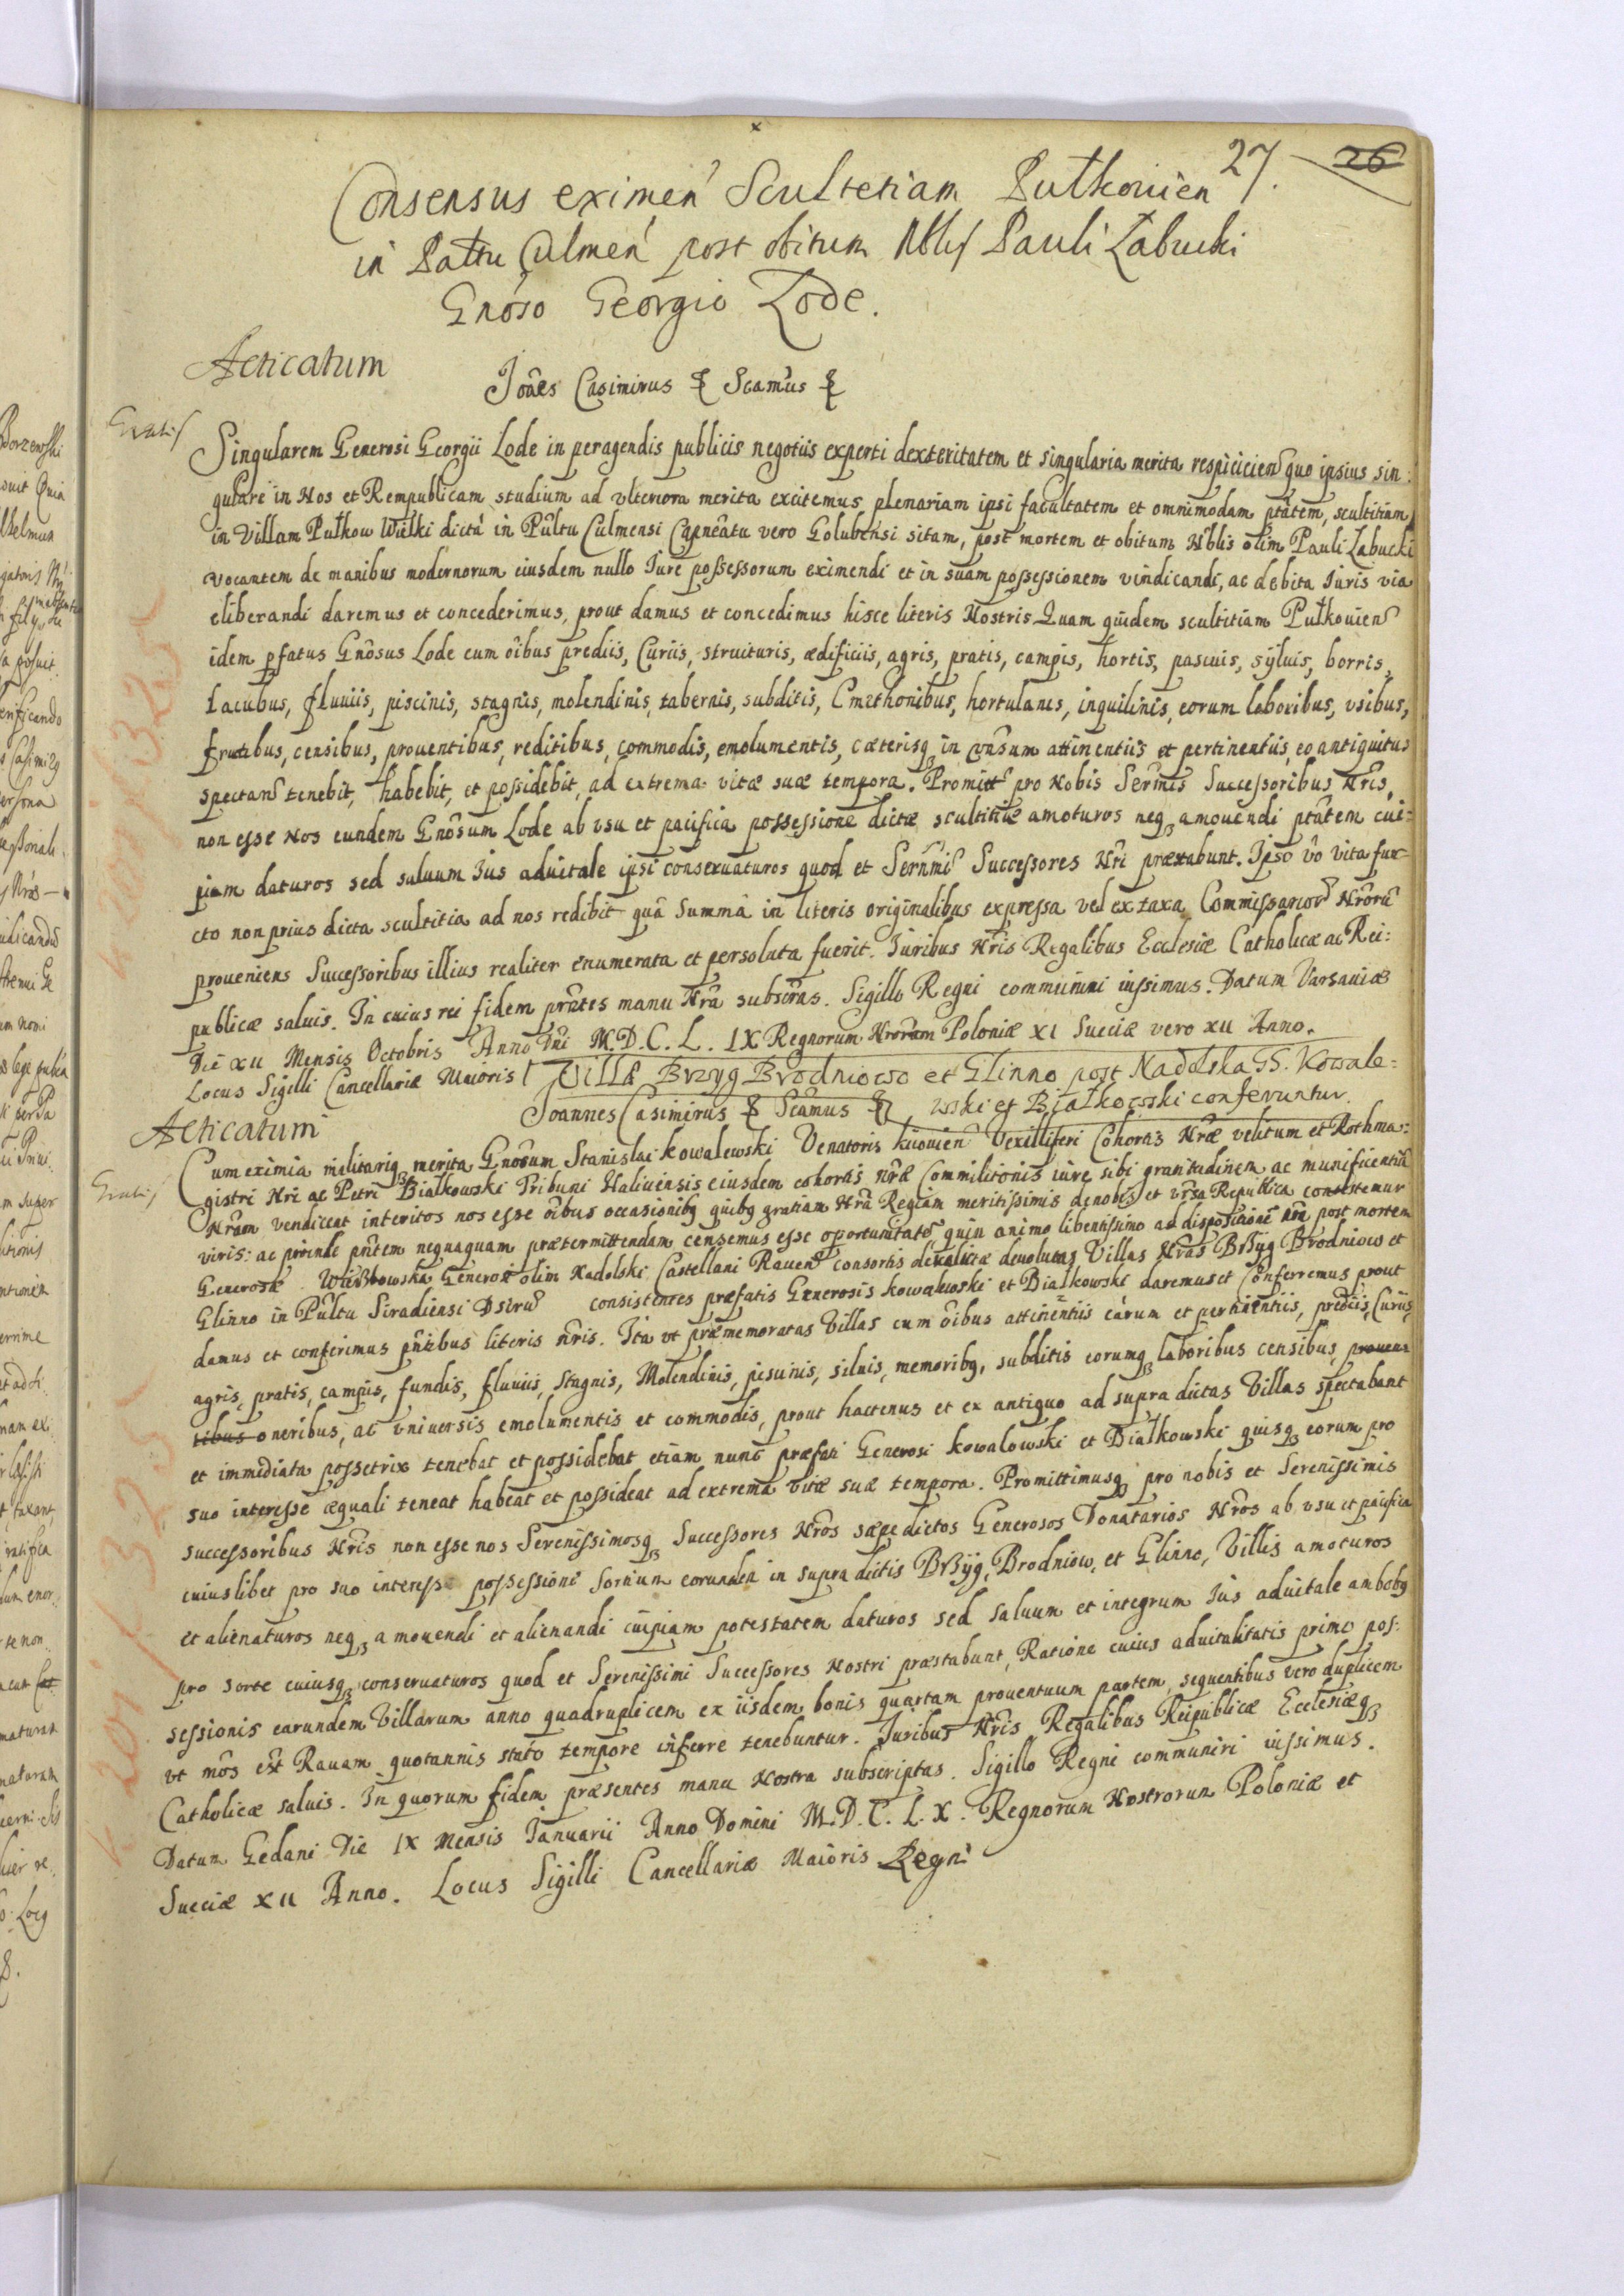 27. 26
Consensus eximen Scultetiam Pułkouien
in Pałtu Culmen post obitum Nblis Pauli Łabucki
Gnoso Georgio Lode.
Acticatum
Joães Casimirus & Scamus &
Gratis
Singularem Generosi Georgii Lode in peragendis publicis negotiis experti dexteritatem et singularia merita respicien quo ipsius sin:
gulare in Nos et Rempublicam studium ad vlteriora merita excitemus plenariam ipsi facultatem et omnimodam ptãtem, scultitiam
in Villam Pułkow Wielki dictã in Pũltu Culmensi Capneãtu vero Golubensi sitam, post mortem et obitum Nblis olim Pauli Łabucki
vocantem de manibus modernorum eiusdem nullo Iure possessorum eximendi et in suam possessionem vindicandi, ac debita Iuris via
eliberandi daremus et concederimus, prout damus et concedimus hisce literis Nostris Quam quidem scultitiam Pułkouien
idem pfatus Gnõsus Lode cum õibus prediis, Curiis, struituris, ædificiis, agris, pratis, campis, hortis, pascuis, syluis, borris,
lacubus, fluuiis, piscinis, stagnis, molendinis, tabernis, subditis, Cmethonibus, hortulanis, inquilinis, eorum laboribus, vsibus,
fructibus, censibus, prouentibus, reditibus, commodis, emolumentis, cæterisq in vnũsum attinentiis et pertinentiis, eo antiquitus
spectan tenebit, habebit, et possidebit, ad extrema vitæ suæ tempora. Promitt pro Nobis Sermis Successoribus Nris,
non esse Nos eundem Gnõsum Lode ab vsu et pacifica possessione dictæ scultitiæ amoturos neq amouendi ptãtem cui:
piam daturos sed saluum Ius aduitale ipsi conseruaturos quod et Sernmi Successores Nri præstabunt. Ipso vo vita fun
cto non prius dicta scultitia ad nos redibit quã Summã in literis originalibus expressa vel ex taxa Commissarior Nrorũ
proueniens Successoribus illius realiter enumerata et persoluta fuerit. Iuribus Nris Regalibus Ecclesiæ Catholicæ ac Rei:
publicæ saluis. In cuius rei fidem prntes manu Nrã subscras. Sigillo Regni communiri iussimus. Datum Varsauiæ
Die XII Mensis Octobris Anno Dni M.D.C.L.IX Regnorum Nrorum Poloniæ XI Sueciæ vero XII Anno.
Locus Sigilli Cancellariæ Maioris Villæ Brzyg Brodniowo et Glinno post Nadolska GG. Kowale=
wski et Białkowski conferuntur.
Joannes Casimirus & Scamus &
Acticatum
Gratis
Cum eximia militariq merita Gnosum Stanislai Kowalewski Venatoris kiiouien Vexilliferi Cohortis Nræ velitum et Rothma:
gistri Nri ac Petri Białkowski Tribuni Haliuensis eiusdem cohortis nræ Commilitonis iure sibi gratitudinem ac munificentiã
Nram vendicent interitos nos esse õibus occasionibq quibq gratiam Nrã Regiam meritissimis de nobis et vrsa Republica contestemur
viris: ac proinde pntem nequaquam prætermittendam censemus esse oportunitate quin animo libentissimo ad dispositione nra post mortem
Generosæ Wierzbowska Generosi olim Nadolski Castellani Rauen consortis devolutas Villas Nras Brzyg Brodniow et
Glinno in Pultu Siradiensi Dseru consistentes præfatis Generosis Kowalewski et Białkowski daremus et Conferremus prout
damus et conferimus pntibus literis nris. Ita vt præmemoratas Villas cum õibus attinentiis earum et pertinentiis, prediis, Curiis,
agris, pratis, campis, fundis, fluuiis, Stagnis, Molendinis, pisunis, siluis, memoribq, subditis eorumq laboribus censibus, prouen
tibus oneribus, ac vniuersis emolumentis et commodis, prout hactenus et ex antiquo ad supra dictas Villas spectabant
et immediata possetrix tenebat et possidebat etiam nunc præfati Generosi Kowalowski et Białkowski quisq eorum pro
suo interesse æquali teneat habeat et possideat ad extrema vitæ suæ tempora. Promittimusq pro nobis et Serenissimis
successoribus Nris non esse nos Serenissimosq Successores Nros sæpe dictos Generosos Donatarios Nros ab vsu et pacifica
cuius libet pro suo interesse possessione sortium eorundem in supra dictis Brzyg, Brodniow, et Glinno, Villis amoturos
et alienaturos neq amouendi et alienandi cuipiam potestatem daturos sed saluum et integrum Ius aduitale ambobq
pro sorte cuiusq conseruaturos quod et Serenissimi Successores Nostri præstabunt, Ratione cuius aduitalitatis primo pos:
sessionis earundem Villarum anno quadruplicem ex iisdem bonis quartam prouentuum partem, sequentibus vero duplicem
vt mos est Rauam quotannis stato tempore inferre tenebuntur. Iuribus Nris Regalibus Reipublicæ Ecclesiæq
Catholicæ saluis. In quorum fidem præsentes manu Nostra subscriptas. Sigillo Regni communiri iussimus.
Datum Gedani Die IX Mensis Ianuarii Anno Domini M.D.C.L.X. Regnorum Nostrorum Poloniæ et
Sueciæ XII Anno. Locus Sigilli Cancellariæ Maioris Regni